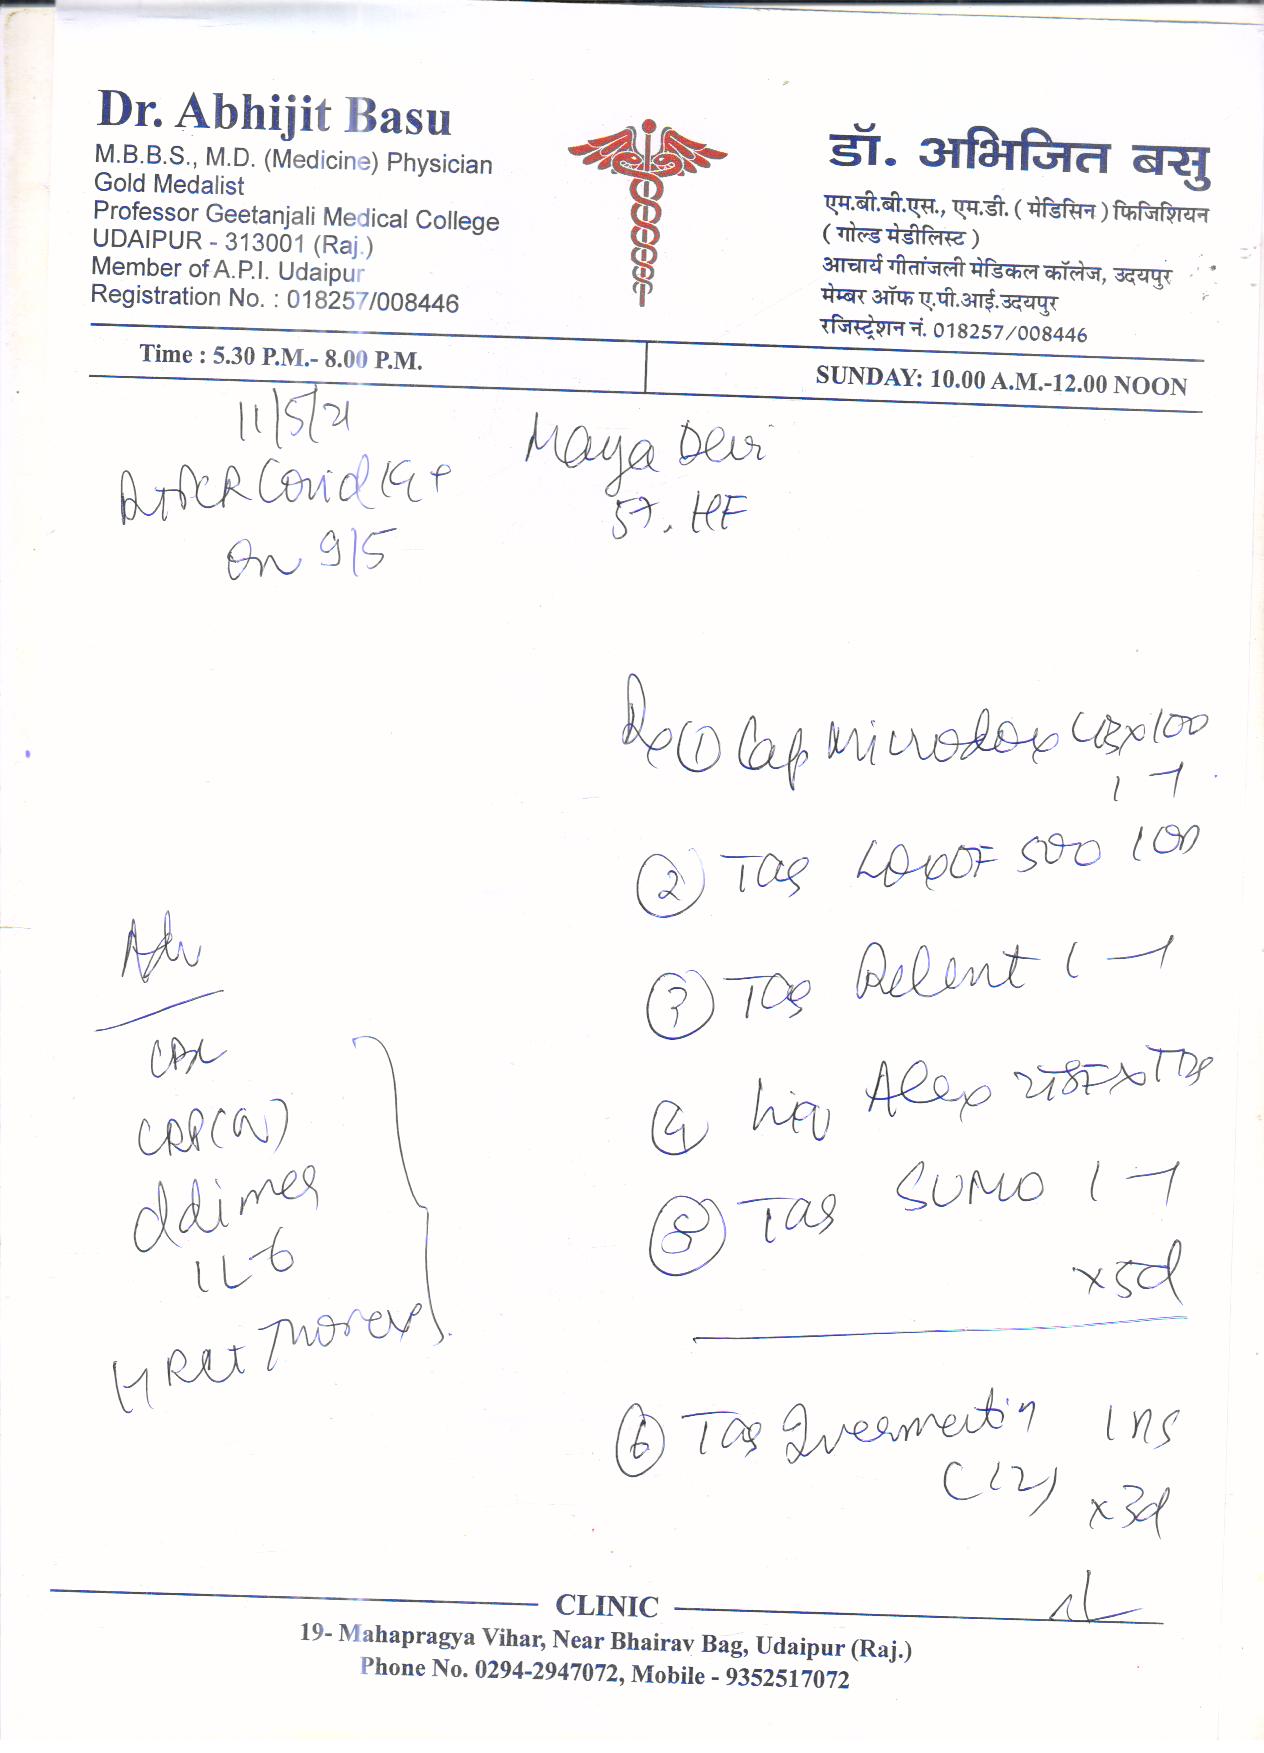 Dr. Abhijit Basu
M.B.B.S., M.D. (Medicine) Physician
Gold Medalist
Professor Geetanjali Medical College
UDAIPUR - 313001 (Raj.)
Member of A.P.I. Udaipur
Registration No. : 018257/008446
डॉ. अभिजित बसु
एम.बी.बी.एस., एम.डी. ( मेडिसिन ) फिजिशियन
( गोल्ड मेडीलिस्ट )
आचार्य गीतांजली मेडिकल कॉलेज, उदयपुर
मेम्बर ऑफ ए.पी.आई.उदयपुर
रजिस्ट्रेशन नं. 018257/008446
Time : 5.30 P.M.- 8.00 P.M.
SUNDAY: 10.00 A.M.-12.00 NOON
11/5/21
RTPCR Covid 19 +
on 9/5
Maya Devi
57. HF
Rx (1) Cap Microdox x 100
1 - 1
(2) Tab LOXOF 500 1 OD
(3) Tab Relent 1 - 1
(4) Liq Alex 2TSF x TDS
(5) Tab SUMO 1 - 1
x 5d
(6) Tab Ivermectin
(12)
x 3d
Adv
CBC
CRP (Q)
ddimer
IL-6
HRCT Thorax
CLINIC
19- Mahapragya Vihar, Near Bhairav Bag, Udaipur (Raj.)
Phone No. 0294-2947072, Mobile - 9352517072